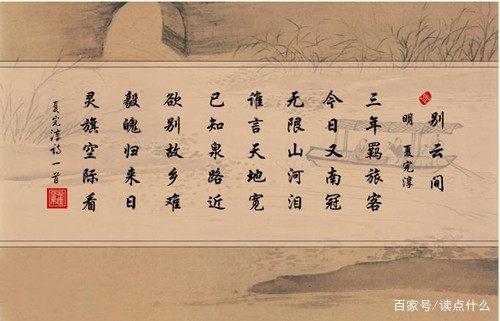 别云间
明 夏完淳
三年羁旅客
今日又南冠
无限山河泪
谁言天地宽
已知泉路近
欲别故乡难
毅魄归来日
灵旗空际看
夏完淳诗一首
百家号/读点什么